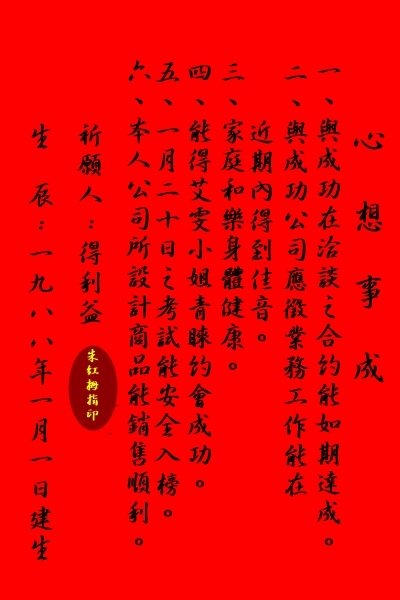 心想事成
一、與成功在洽談之合約能如期達成。
二、與成功公司應徵業務工作能在
近期內得到佳音。
三、家庭和樂身體健康。
四、能得艾雯小姐青睞約會成功。
五、一月二十日之考試能安全入榜。
六、本人公司所設計商品能銷售順利。
祈願人：得利益
朱紅拇指印
生辰：一九八八年一月一日建生